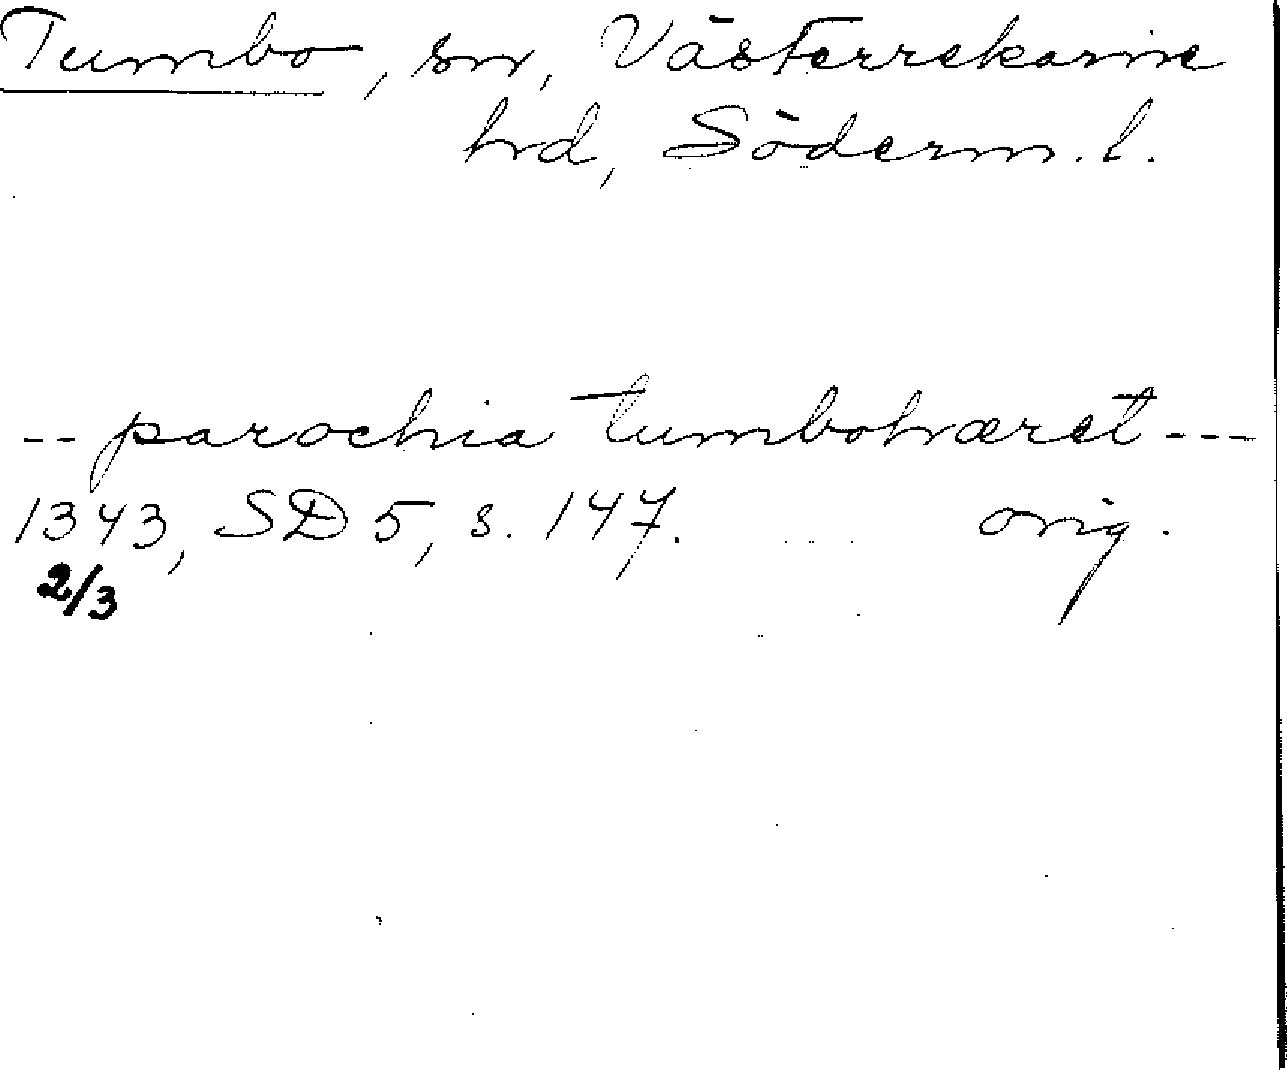 Tumbo, sn, Västerrekarne
hd, Söderm. l.
-- parochia tumbohæret ---
1343, SD 5, s. 147. orig.
2/3